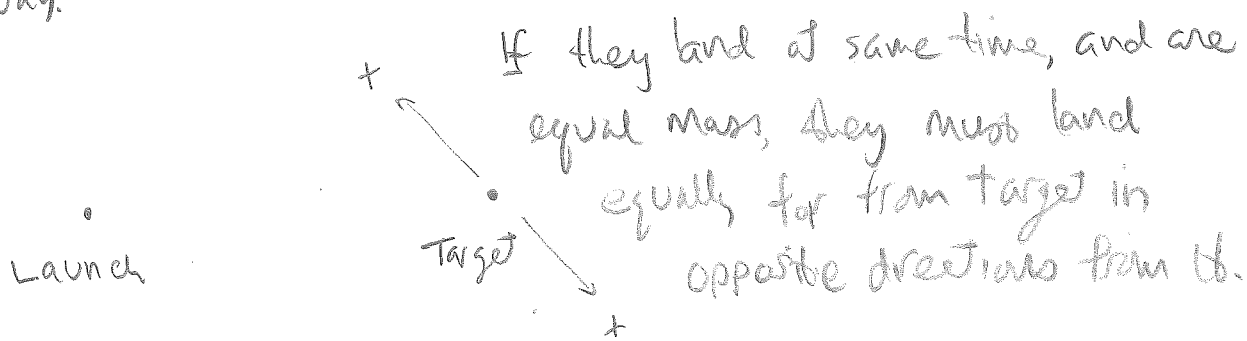 If they land at same time, and are
equal mass, they must land
equally far from target in
opposite directions from it.
Target
Launch